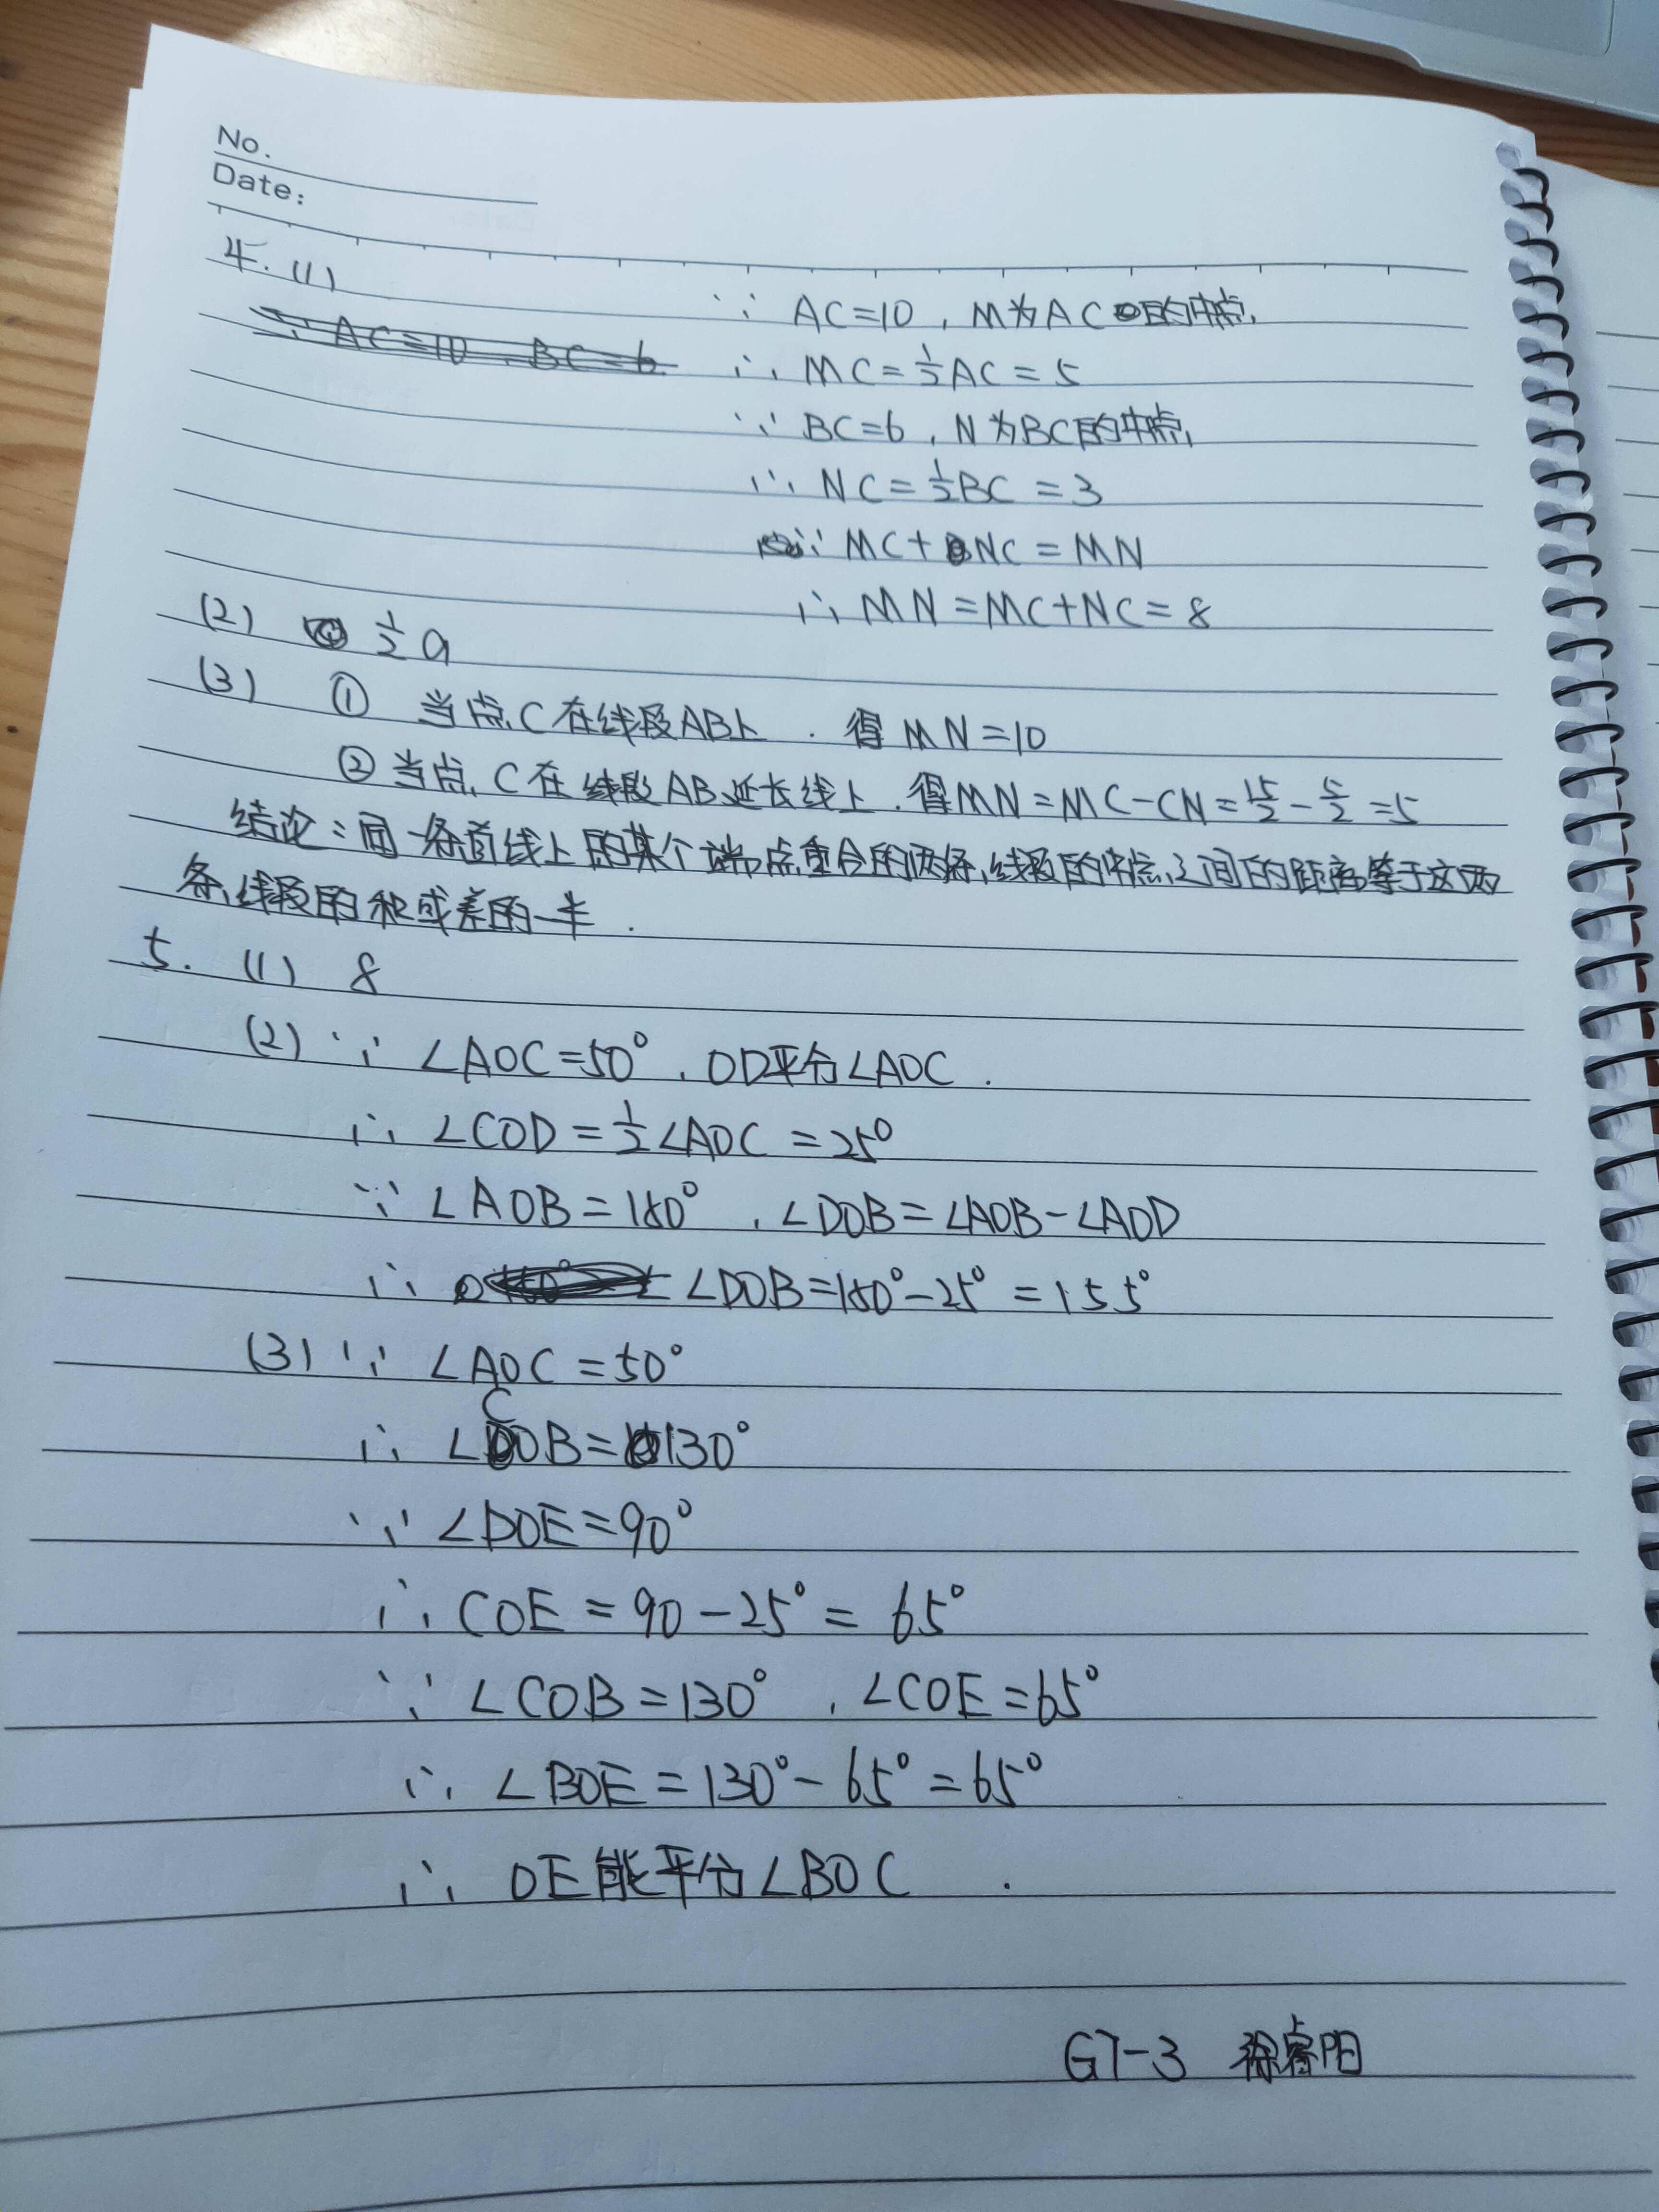 No.
Date:
4. (1)
∵ AC=10 , M为AC的中点,
∵ AC=10 , BC=6
∴ MC=½AC=5
∵ BC=6 , N为BC的中点,
∴ NC=½BC=3
∵ MC+NC=MN
∴ MN=MC+NC=8
(2) ½a
(3) ① 当点C在线段AB上 . 得MN=10
② 当点C在线段AB延长线上 . 得MN=MC-CN=15/2-5/2=5
结论:同一条直线上的某个端点重合的两条线段的中点之间的距离等于这两
条线段的和或差的一半 .
5. (1) 8
(2) ∵ ∠AOC=50° , OD平分∠AOC .
∴ ∠COD=½∠AOC=25°
∵ ∠AOB=180° , ∠DOB=∠AOB-∠AOD
∴ ∠DOB=180°-25°=155°
(3) ∵ ∠AOC=50°
∴ ∠COB=130°
∵ ∠DOE=90°
∴ COE=90-25°=65°
∵ ∠COB=130° , ∠COE=65°
∴ ∠BOE=130°-65°=65°
∴ OE能平分∠BOC .
G7-3 徐睿阳